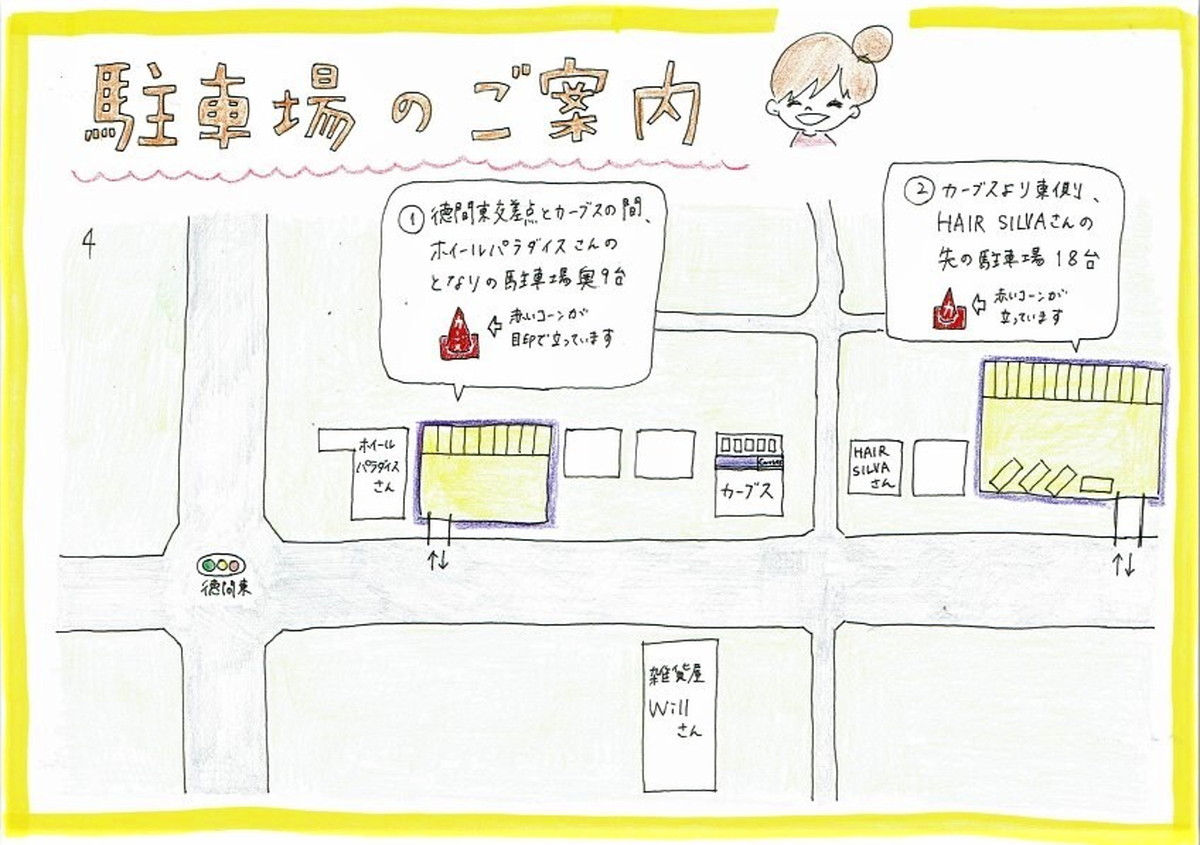 駐車場のご案内
4
① 徳間東交差点とカーブスの間、
ホイールパラダイスさんの
となりの駐車場奥9台
カーブス
⇦ 赤いコーンが
目印で立っています
② カーブスより東側、
HAIR SILVAさんの
先の駐車場 18台
カ
⇦ 赤いコーンが
立っています
ホイール
パラダイス
さん
↑↓
Curves
カーブス
HAIR
SILVA
さん
↑↓
徳間東
雑貨屋
Will
さん